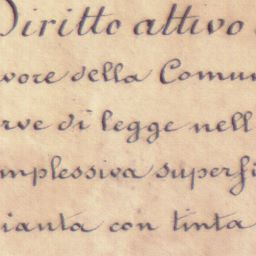 Diritto attivo
vore della Comun
rve di legge nell
mplessiva superfi
ianta con tinta